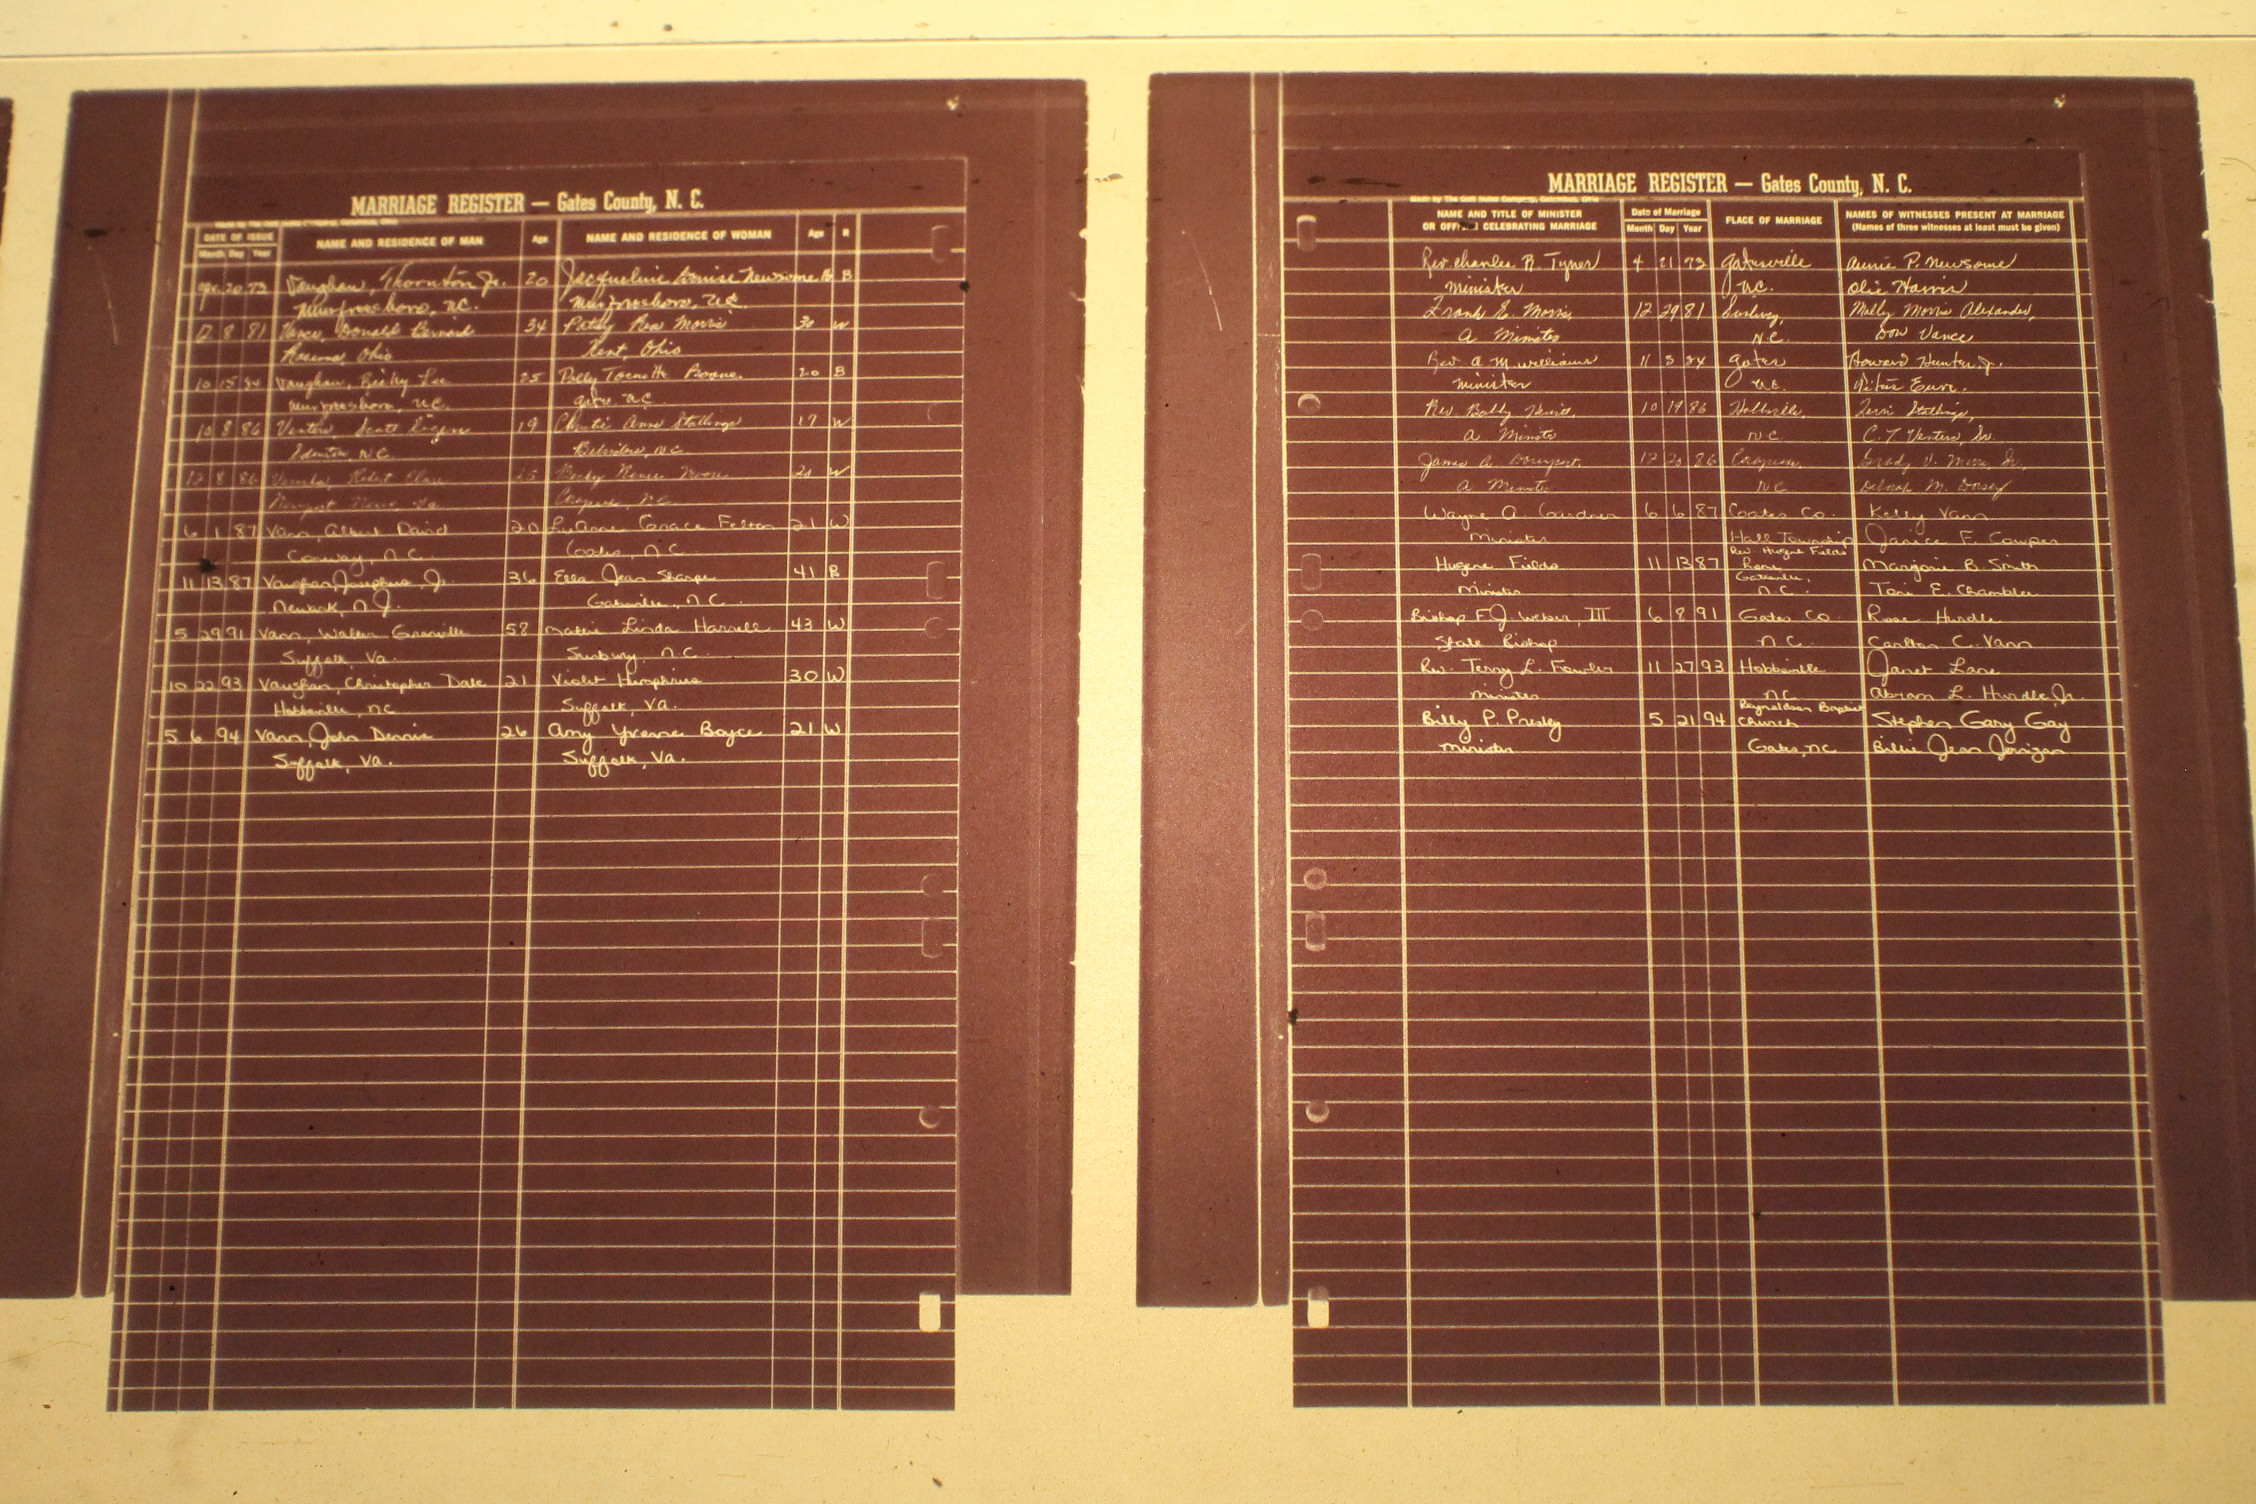 MARRIAGE REGISTER — Gates County, N. C.
DATE OF ISSUE
Month Day Year
NAME AND RESIDENCE OF MAN
Age
NAME AND RESIDENCE OF WOMAN
Age
R
Apr. 20 73 Vaughan, Thornton Jr. 20 Jacqueline Louise Newsome B
Murfreesboro, N.C. Murfreesboro, N.C.
12 8 81 Vance, Donald Bernard 34 Patsy Rea Morris 30 W
Ohio Kent, Ohio
10 15 84 Vaughan, Ricky Lee 25 Polly 20 B
Murfreesboro, N.C. Gates, N.C.
10 8 86 Scott 19 Christi Anne Stallings 17 W
Edenton, N.C. Belvidere, N.C.
12 8 86 Robert 25 Becky Renee Moore W
Newport News, Va N.C.
6 1 87 Vann, Albert David 20 LuAnne Grace Felton 21 W
Conway, N.C. Gates, N.C.
11 13 87 Vaughan, Josephus, Jr. 36 Ella Jean Sharpe 41 B
Newark, N.J. Gatesville, N.C.
5 29 91 Vann, Walter Granville 58 Mattie Linda Harrell 43 W
Suffolk, Va. Sunbury, N.C.
10 22 93 Vaughan, Christopher Dale 21 Violet Humphries 30 W
Hobbsville, NC Suffolk, Va.
5 6 94 Vann, John Dennis 26 Amy Yvonne Boyce 21 W
Suffolk, Va. Suffolk, Va.
MARRIAGE REGISTER — Gates County, N. C.
Made by The Cott Index Company, Columbus, Ohio
NAME AND TITLE OF MINISTER
OR OFFICER CELEBRATING MARRIAGE
Date of Marriage
Month Day Year
PLACE OF MARRIAGE
NAMES OF WITNESSES PRESENT AT MARRIAGE
(Names of three witnesses at least must be given)
Rev. Charles R. Tyner 4 21 73 Gatesville Annie P. Newsome
Minister N.C. Olie Harris
Frank E. Morris, 12 29 81 Sunbury, Molly Morris Alexander,
A Minister N.C. Don Vance
Rev. A M Williams 11 3 84 Gates Howard Hunter Jr.
Minister N.C. Eure.
Rev. Bobby 10 19 86 Hobbsville, Terri Stallings,
A Minister N.C. C. T. Venters, Sr.
James A. 12 20 86 Grady V. Moore, Jr.
A Minister N.C. Deborah M. Dorsey
Wayne A. Gardner 6 6 87 Gates Co. Kelly Vann
Minister Hall Township Janice F. Cowper
Rev. Hugene Fields
Hugene Fields 11 13 87 Home Marjorie B. Smith
Gatesville,
Minister N.C. Toni E. Chamblee
Bishop F. J. Weber, III 6 8 91 Gates Co. Rose Hurdle
State Bishop N.C. Carlton C. Vann
Rev. Terry L. Fowler 11 27 93 Hobbsville Janet Lane
Minister NC Abram L. Hurdle, Jr.
Reynoldson Baptist
Billy P. Presley 5 21 94 Church Stephen Gary Gay
Minister Gates, NC Billie Jean Jernigan